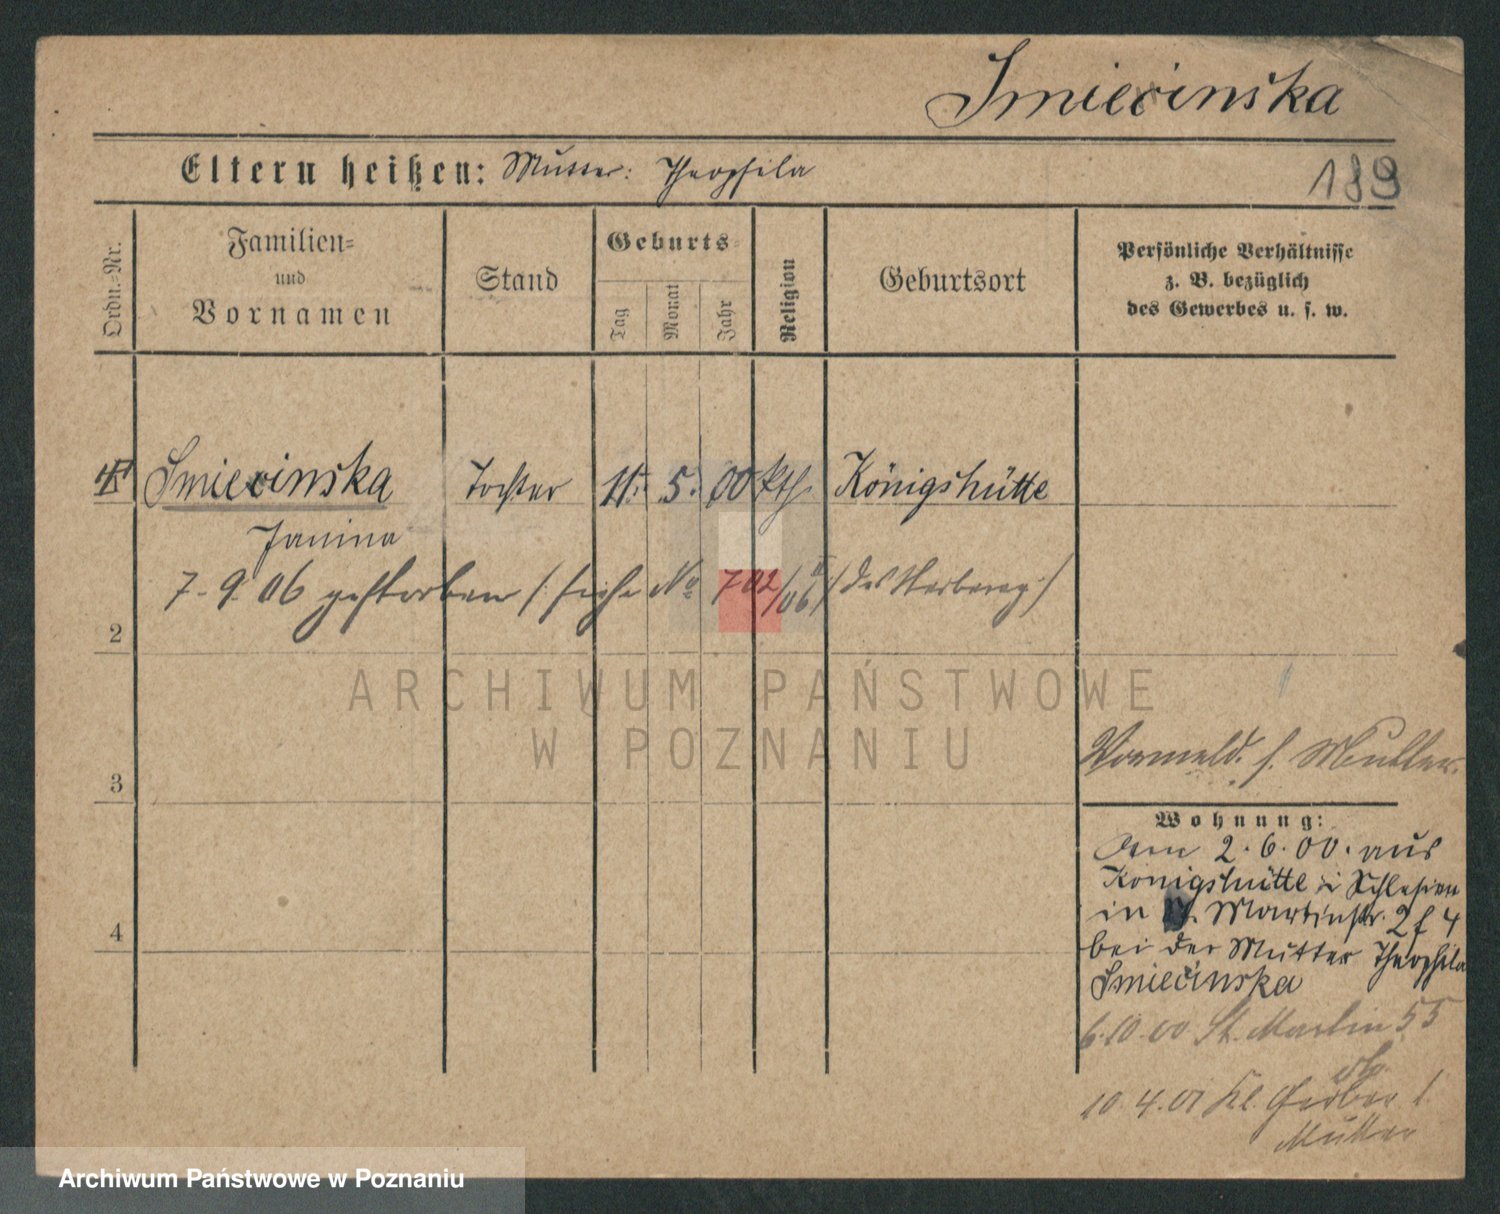 Smiecinska
Eltern heißen: Mutter: Theophila
189
Ordn.=Nr.
Familien=
und
Vornamen
Stand
Geburts=
Tag
Monat
Jahr
Religion
Geburtsort
Persönliche Verhältnisse
z. B. bezüglich
des Gewerbes u. s. w.
Smiecinska Tochter 11. 5. 00 kth. Königshütte
Janina
7. 9. 06 gestorben /: siehe No 702/06
2
ARCHIWUM PAŃSTWOWE
W POZNANIU
Vormeld. s. Mutter.
3
Wohnung:
Am 2. 6. 00. aus
Königshütte i Schlesien
in Martinstr. 2f 4
bei der Mutter Theophila
Smiecinska
4
6.10.00 St. Martin 55
10.4.01 Kl. Gerber 1
Mutter
Archiwum Państwowe w Poznaniu